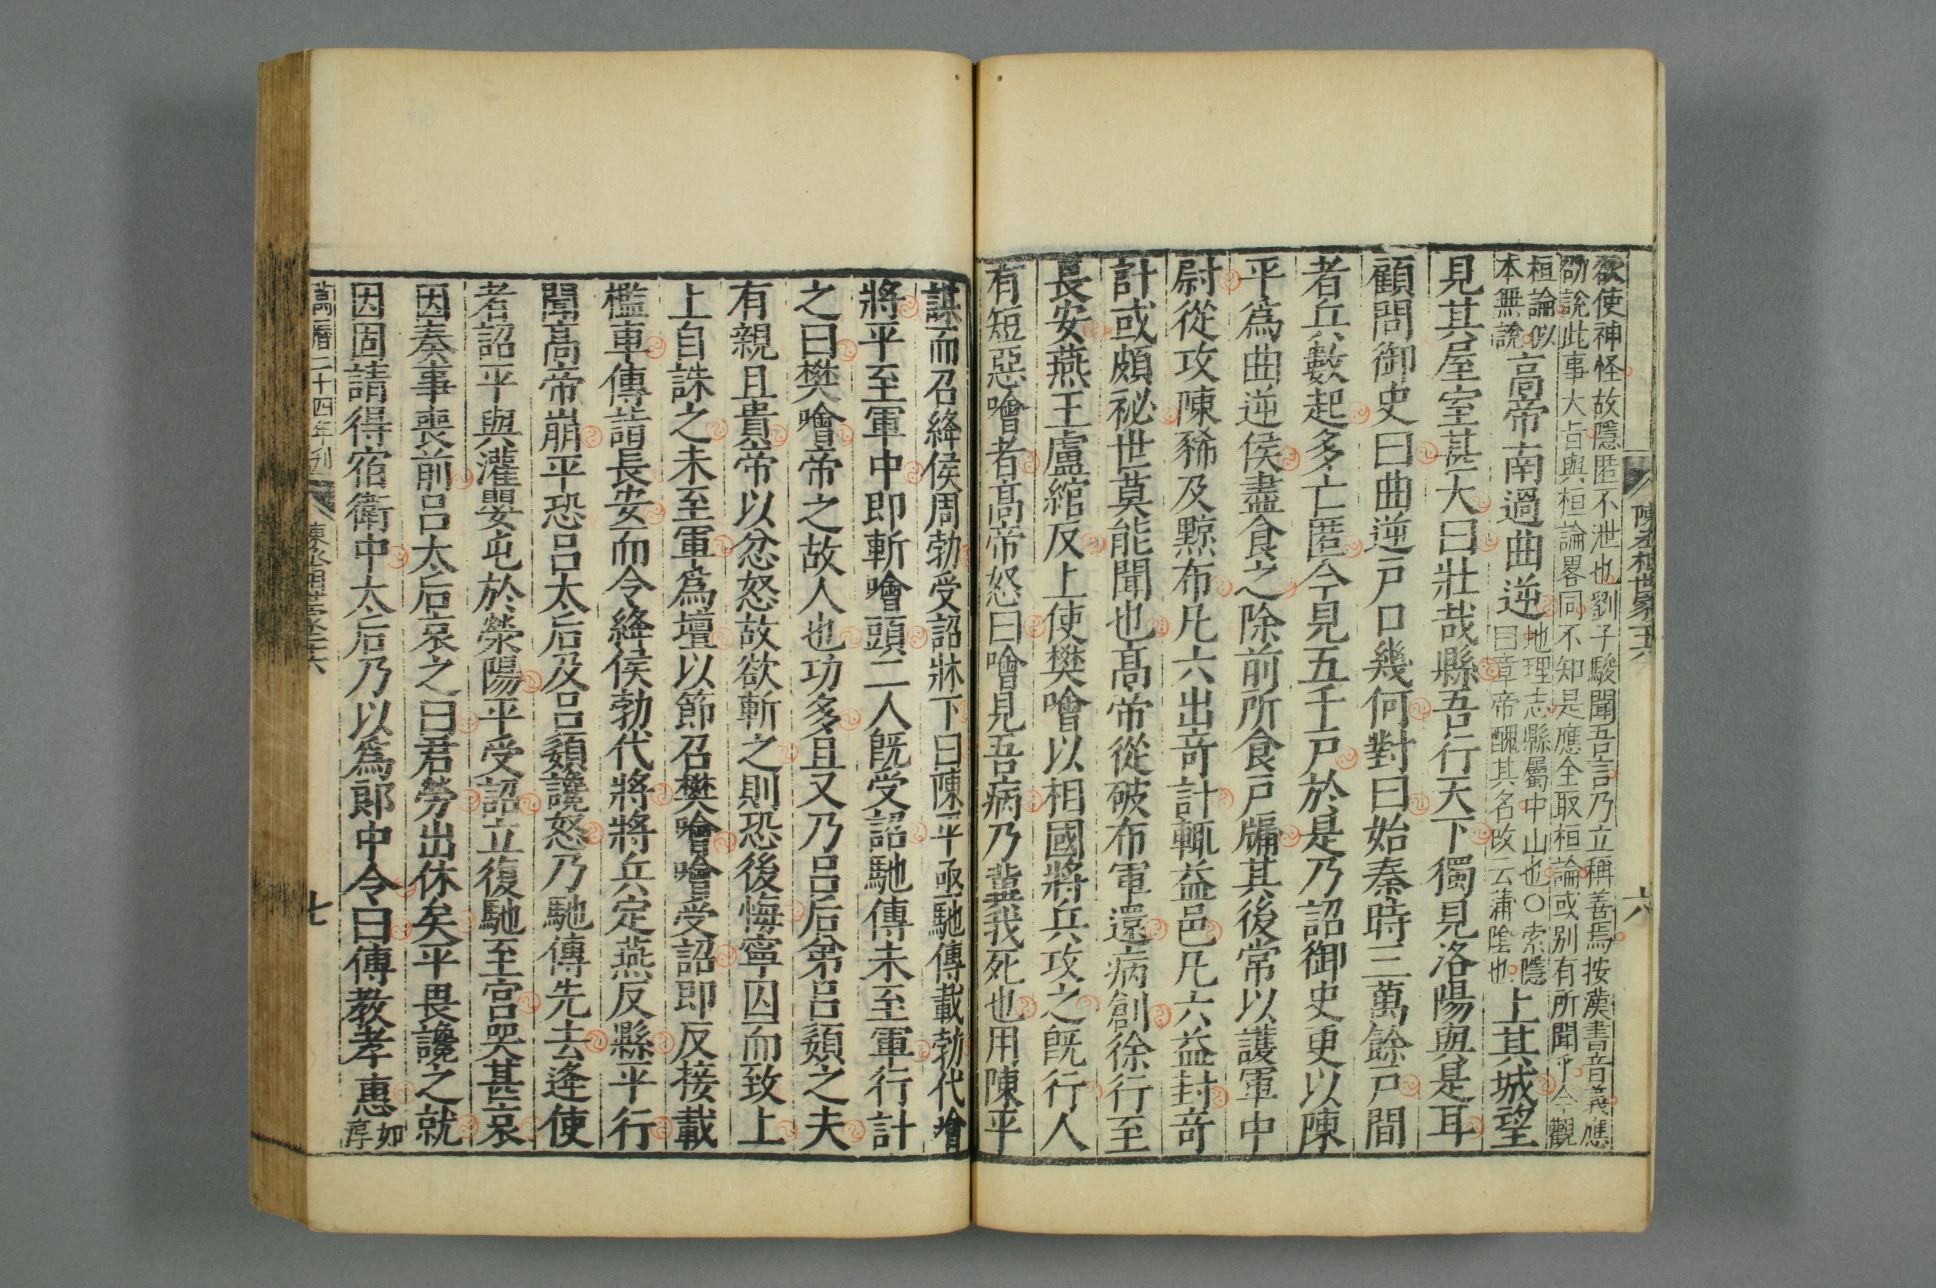 欲使神怪故隱匿不泄也劉子駿聞吾言乃立稱善焉按漢書音義應
劭說此事大旨與桓論畧同不知是應全取桓論或別有所聞乎今觀
桓論似
本無說
高帝南過曲逆
地理志縣屬中山也○索隱
曰章帝醜其名改云蒲陰也
上其城望
見其屋室甚大曰壯哉縣吾行天下獨見洛陽與是耳
顧問御史曰曲逆戶口幾何對曰始秦時三萬餘戶間
者兵數起多亡匿今見五千戶於是乃詔御史更以陳
平爲曲逆侯盡食之除前所食戶牖其後常以護軍中
尉從攻陳豨及黥布凡六出竒計輒益邑凡六益封竒
計或頗祕世莫能聞也高帝從破布軍還病創徐行至
長安燕王盧綰反上使樊噲以相國將兵攻之旣行人
有短惡噲者高帝怒曰噲見吾病乃冀我死也用陳平
陳丞相世家二十六
六
謀而召絳侯周勃受詔牀下曰陳平亟馳傳載勃代噲
將平至軍中即斬噲頭二人旣受詔馳傳未至軍行計
之曰樊噲帝之故人也功多且又乃呂后弟呂嬃之夫
有親且貴帝以忿怒故欲斬之則恐後悔寧囚而致上
上自誅之未至軍爲壇以節召樊噲噲受詔即反接載
檻車傳詣長安而令絳侯勃代將將兵定燕反縣平行
聞高帝崩平恐呂太后及呂嬃讒怒乃馳傳先去逢使
者詔平與灌嬰屯於滎陽平受詔立復馳至宮哭甚哀
因奏事喪前呂太后哀之曰君勞出休矣平畏讒之就
因固請得宿衛中太后乃以爲郎中令曰傅教孝惠
如
淳
萬曆二十四年刊
陳丞相世家二十六
七